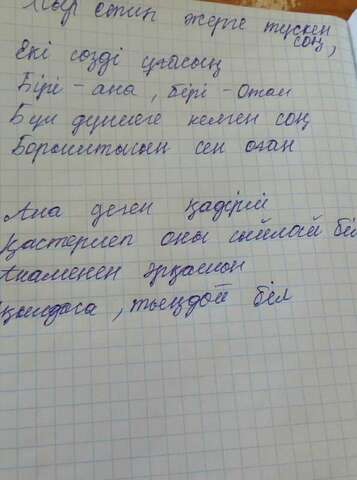 жерге түскен
соң,
Екі сөзді ұғасың
Бірі - ана, бірі - Отан
Бұл дүниеге келген соң
Борыштысың сен оған
Ана деген қадірлі
Қастерлеп оны сыйлай біл
Анаменен әрқашан
, тыңдай біл